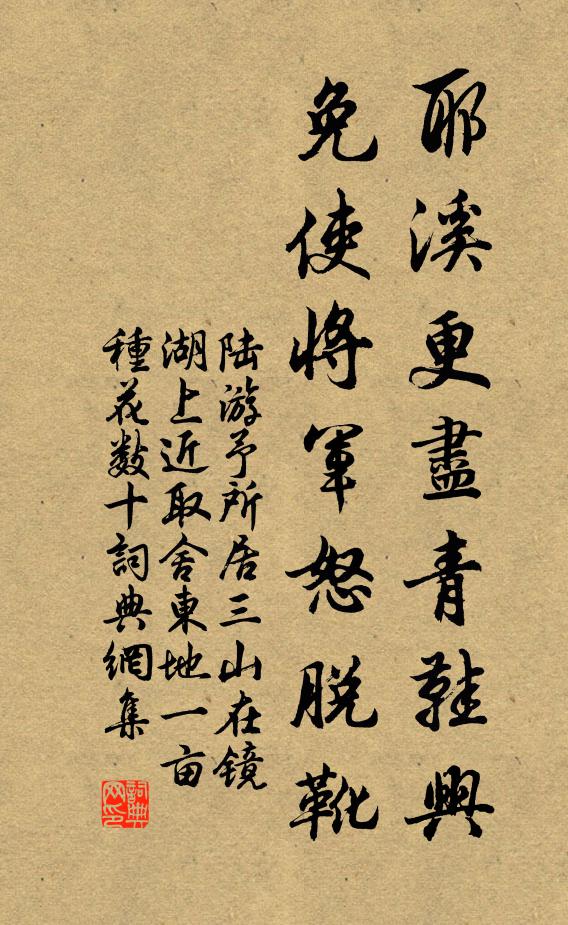 耶溪更盡青鞋興
免使將軍怒脫靴
陆游予所居三山在镜
湖上近取舍東地一亩
種花数十詞典網集
詞典网印